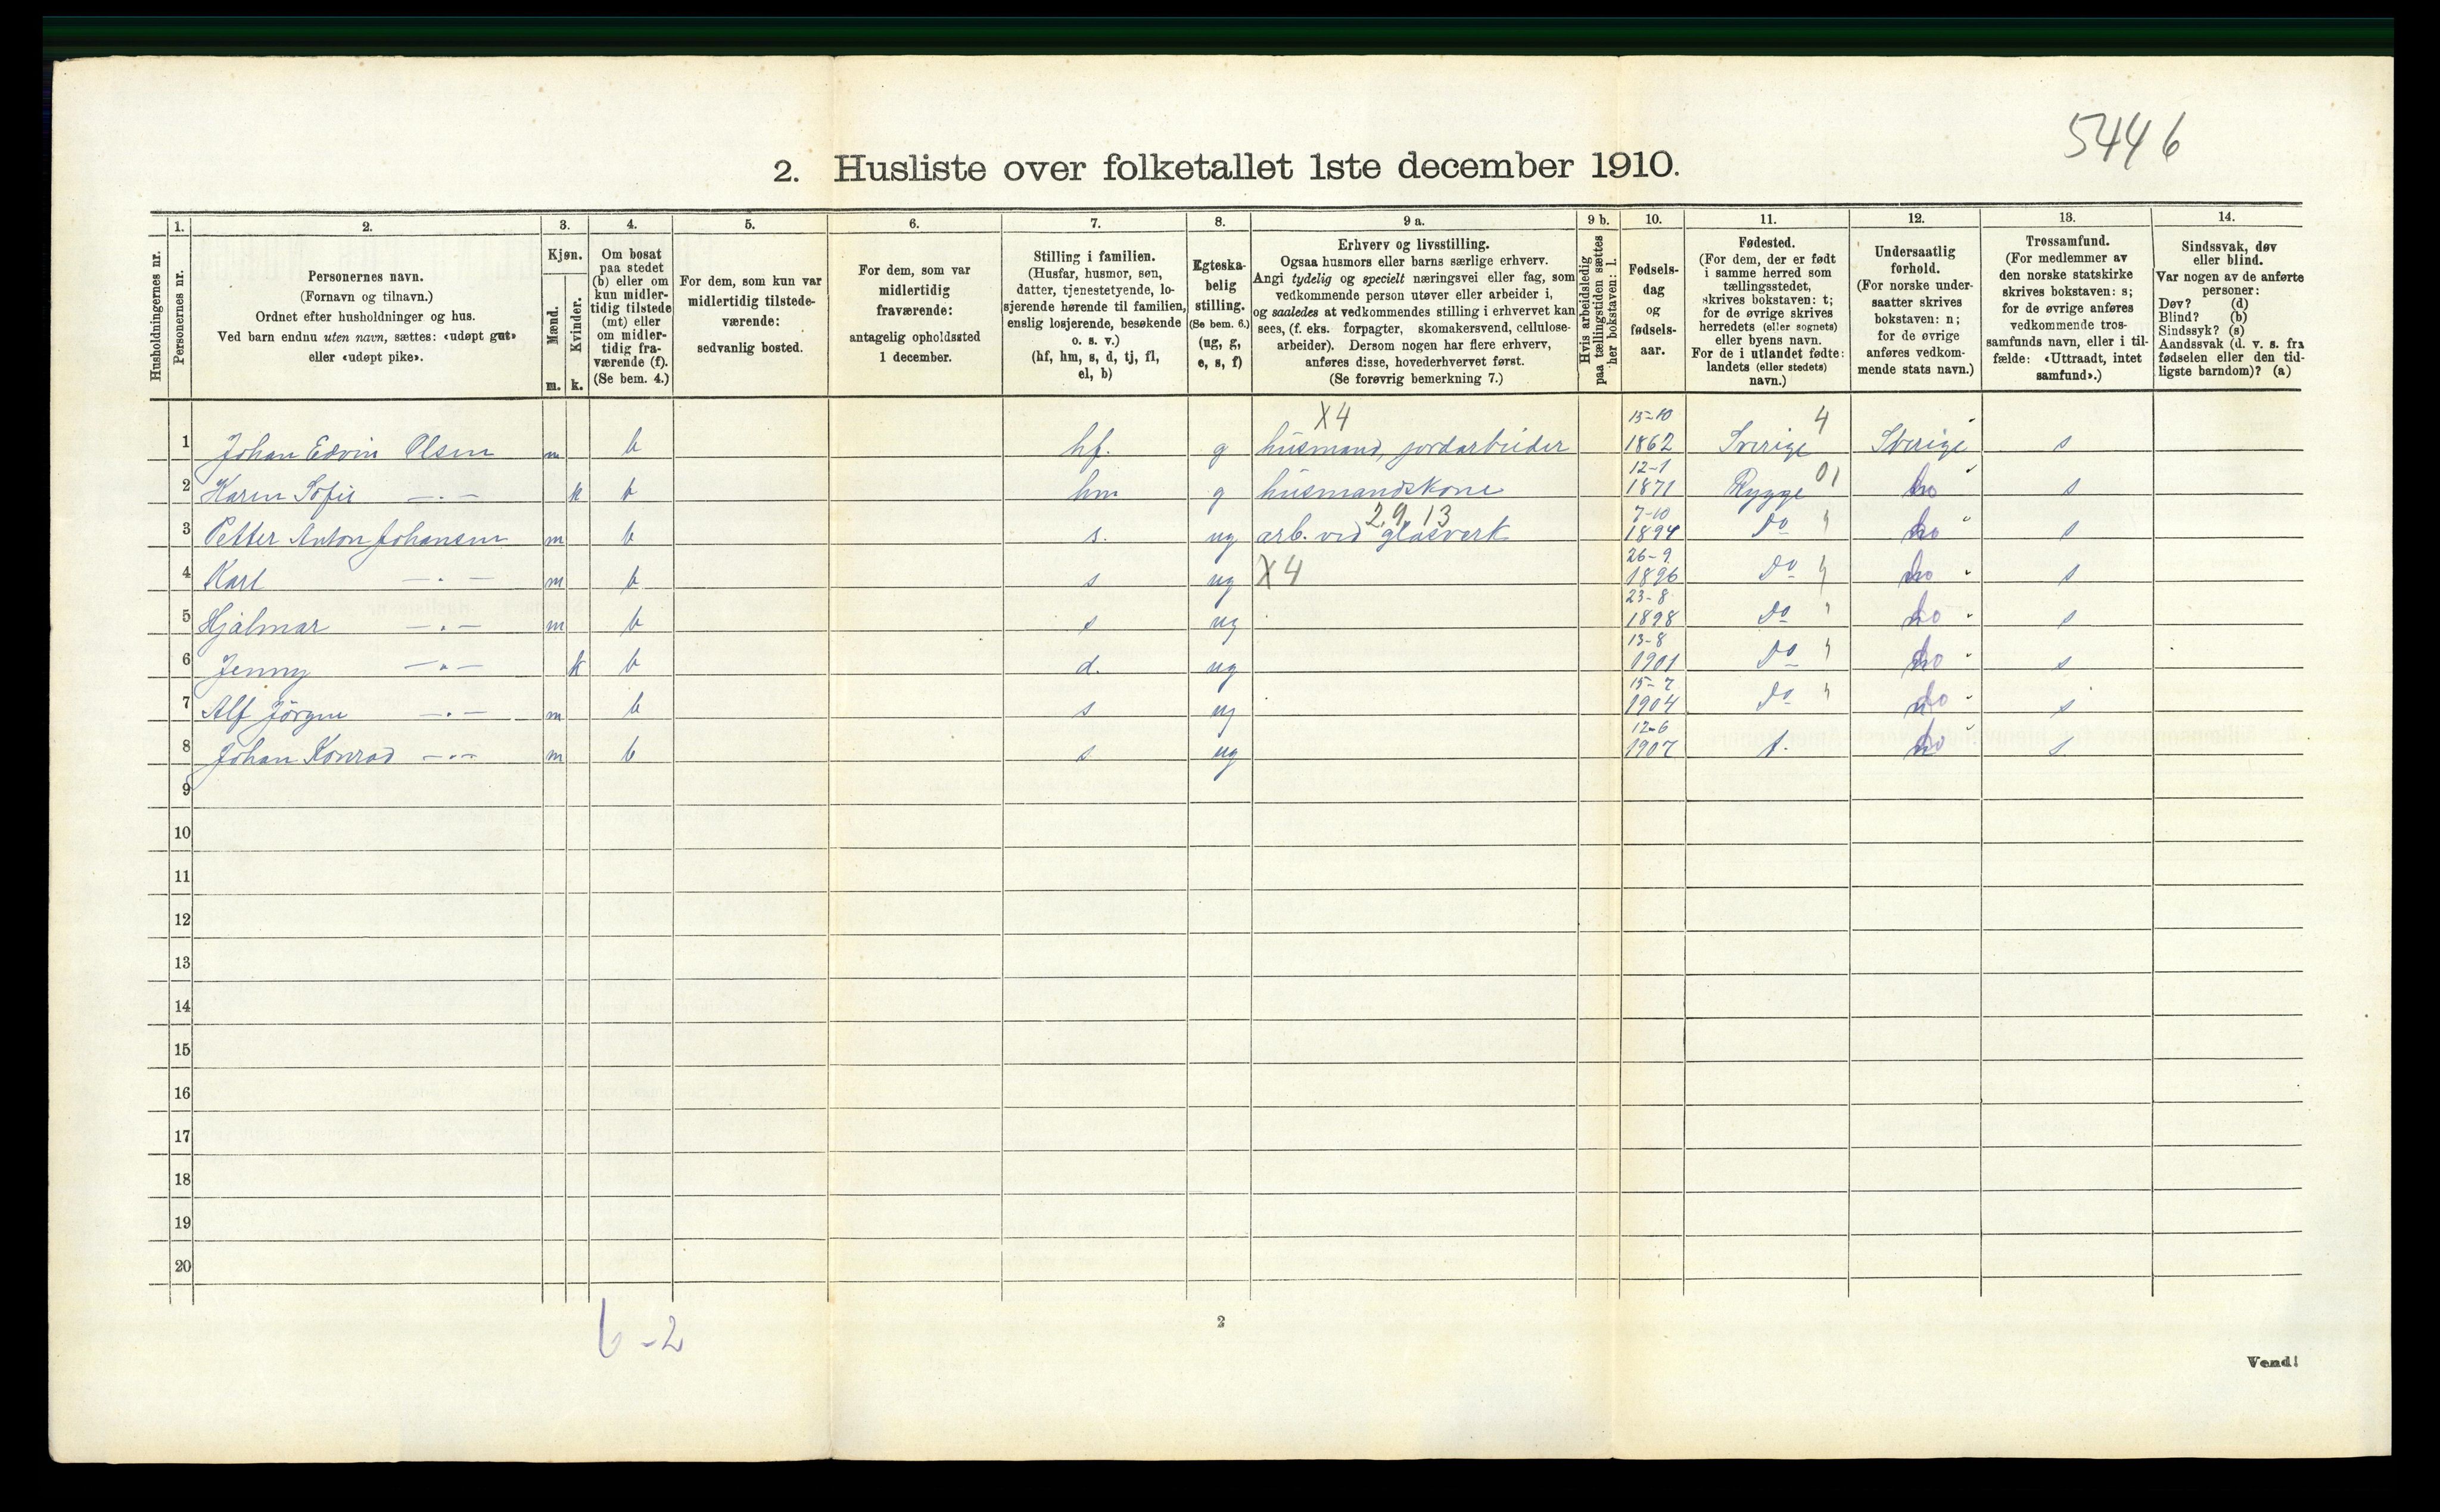 5446
2. Husliste over folketallet 1ste december 1910.
Husholdningernes nr.
1. Personernes nr.
2. Personernes navn.
(Fornavn og tilnavn.)
Ordnet efter husholdninger og hus.
Ved barn endnu uten navn, sættes: «udøpt gut»
eller «udøpt pike».
3. Kjøn.
Mænd. m.
Kvinder. k.
4. Om bosat
paa stedet
(b) eller om
kun midler-
tidig tilstede
(mt) eller
om midler-
tidig fra-
værende (f).
(Se bem. 4.)
5. For dem, som kun var
midlertidig tilstede-
værende:
sedvanlig bosted.
6. For dem, som var
midlertidig
fraværende:
antagelig opholdssted
1 december.
7. Stilling i familien.
(Husfar, husmor, søn,
datter, tjenestetyende, lo-
sjerende hørende til familien,
enslig losjerende, besøkende
o. s. v.)
(hf, hm, s, d, tj, fl,
el, b)
8. Egteska-
belig
stilling.
(Se bem. 6.)
(ug, g,
e, s, f)
9 a. Erhverv og livsstilling.
Ogsaa husmors eller barns særlige erhverv.
Angi tydelig og specielt næringsvei eller fag, som
vedkommende person utøver eller arbeider i,
og saaledes at vedkommendes stilling i erhvervet kan
sees, (f. eks. forpagter, skomakersvend, cellulose-
arbeider). Dersom nogen har flere erhverv,
anføres disse, hovederhvervet først.
(Se forøvrig bemerkning 7.)
9 b. Hvis arbeidsledig
paa tællingstiden sættes
her bokstaven: l.
10. Fødsels-
dag
og
fødsels-
aar.
11. Fødested.
(For dem, der er født
i samme herred som
tællingsstedet,
skrives bokstaven: t;
for de øvrige skrives
herredets (eller sognets)
eller byens navn.
For de i utlandet fødte:
landets (eller stedets)
navn.)
12. Undersaatlig
forhold.
(For norske under-
saatter skrives
bokstaven: n;
for de øvrige
anføres vedkom-
mende stats navn.)
13. Trossamfund.
(For medlemmer av
den norske statskirke
skrives bokstaven: s;
for de øvrige anføres
vedkommende tros-
samfunds navn, eller i til-
fælde: «Uttraadt, intet
samfund».)
14. Sindssvak, døv
eller blind.
Var nogen av de anførte
personer:
Døv? (d)
Blind? (b)
Sindssyk? (s)
Aandssvak (d. v. s. fra
fødselen eller den tid-
ligste barndom)? (a)
X4 15-10 4
1 Johan Edvin Olsen m b hf. g husmand, jordarbeider 1862 Sverige Sverige s
12-1 01
2 Karen Sofie —„— k b hm g husmandskone 1871 Rygge do s
2.9.13 7-10
3 Petter Anton Johansen m b s. ug arb. ved glasverk 1894 do do s
26-9
4 Karl —„— m b s ug X4 1896 do do s
23-8
5 Hjalmar —„— m b s ug 1898 do do s
13-8
6 Jenny —„— k b d. ug 1901 do do s
15-7
7 Alf Jörgen —„— m b s ug 1904 do do s
12-6
8 Johan Konrad —„— m b s ug 1907 t. do s
9
10
11
12
13
14
15
16
17
18
19
20
6-2
2
Vend!